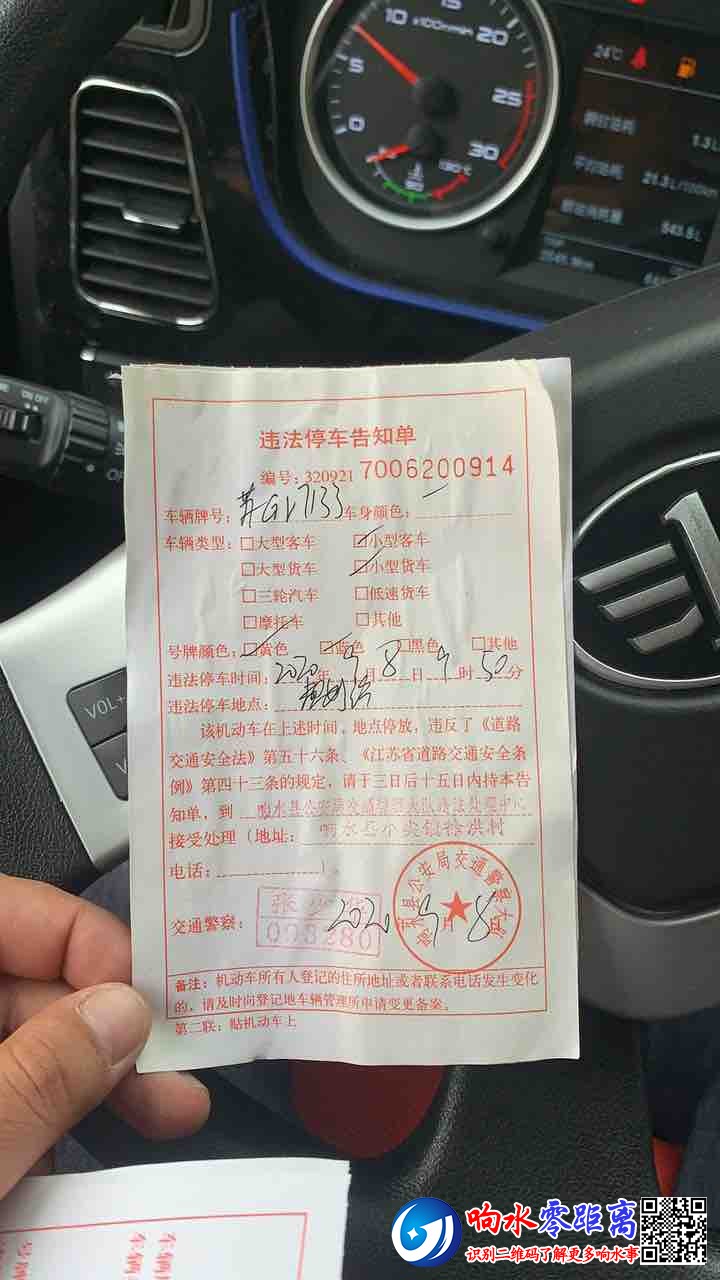 15
10
x100r/min
20
5
25
0
30
130°C
24°C
1.3L
平均油耗
21.3L/100km
543.5L
VOL+
违法停车告知单
编号:320921 7006200914
车辆牌号:苏G17133车身颜色:
车辆类型:□大型客车 ☑小型客车
□大型货车 ☑小型货车
□三轮汽车 □低速货车
□摩托车 □其他
号牌颜色:☑黄色 ☑蓝色 □黑色 □其他
违法停车时间:2020年9月8日9时50分
违法停车地点:
该机动车在上述时间、地点停放,违反了《道路
交通安全法》第五十六条、《江苏省道路交通安全条
例》第四十三条的规定,请于三日后十五日内持本告
知单,到 响水县公安局交通警察大队违法处理中心
接受处理(地址: 响水县小尖镇徐洪村
电话: )。
交通警察: 张 2020 9月8日
093280
响水县公安局交通警察大队
备注:机动车所有人登记的住所地址或者联系电话发生变化
的,请及时向登记地车辆管理所申请变更备案。
第二联:贴机动车上
响水零距离
识别二维码了解更多响水事